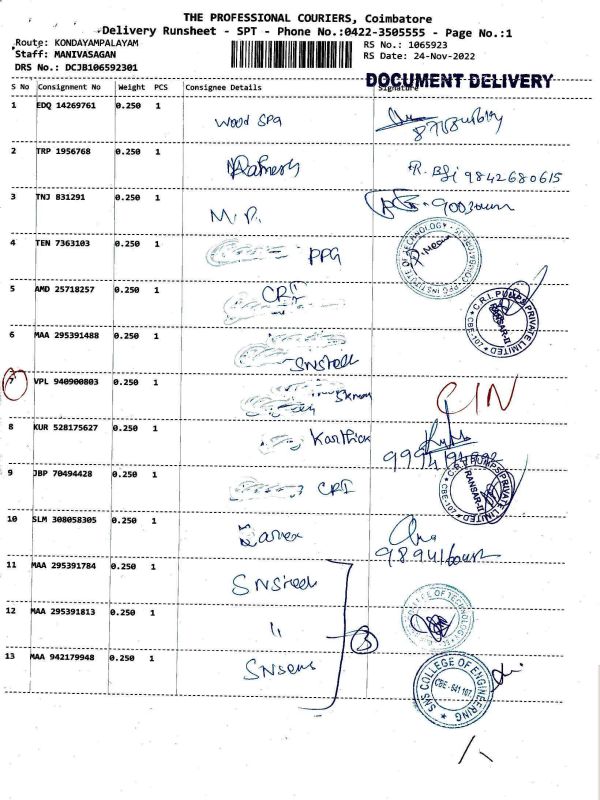 THE PROFESSIONAL COURIERS, Coimbatore
Delivery Runsheet - SPT - Phone No.:0422-3505555 - Page No.:1
Route: KONDAYAMPALAYAM
Staff: MANIVASAGAN
DRS No.: DCJB106592301
RS No.: 1065923
RS Date: 24-Nov-2022
DOCUMENT DELIVERY
S No Consignment No Weight PCS Consignee Details Signature
1 EDQ 14269761 0.250 1 Wood Spa
2 TRP 1956768 0.250 1 9842680615
3 TNJ 831291 0.250 1 M.P.
4 TEN 7363103 0.250 1 PPG
PPG INSTITUTE OF TECHNOLOGY
5 AMD 25718257 0.250 1 CRI
C.R.I. PUMPS PRIVATE LIMITED RANSAR-II CBE-107
6 MAA 295391488 0.250 1 SNStech
7 VPL 940900803 0.250 1
8 KUR 528175627 0.250 1 Karthick
9 JBP 70494428 0.250 1 CRI
C.R.I. PUMPS PRIVATE LIMITED RANSAR-II CBE-107
10 SLM 308058305 0.250 1
11 MAA 295391784 0.250 1 SNStech
12 MAA 295391813 0.250 1 "
OF TECHNOLOGY
3
13 MAA 942179948 0.250 1
SNS COLLEGE OF ENGINEERING CBE - 641 107